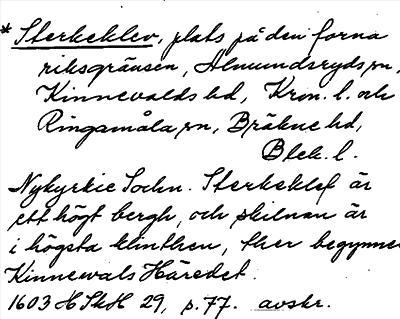 * Sterkeklev, plats på den forna
riksgränsen, Almundsryds sn,
Kinnevalds hd, Kron. l. och
Ringamåla sn, Bräkne hd,
Blek. l.
Nykyrkie Sochn. Sterkeklef är
ett högt bergh, och skilnan är
i högsta klinthen, ther begynnes
Kinnewals Häredet.
1603 H Sk H 29, p. 77. avskr.